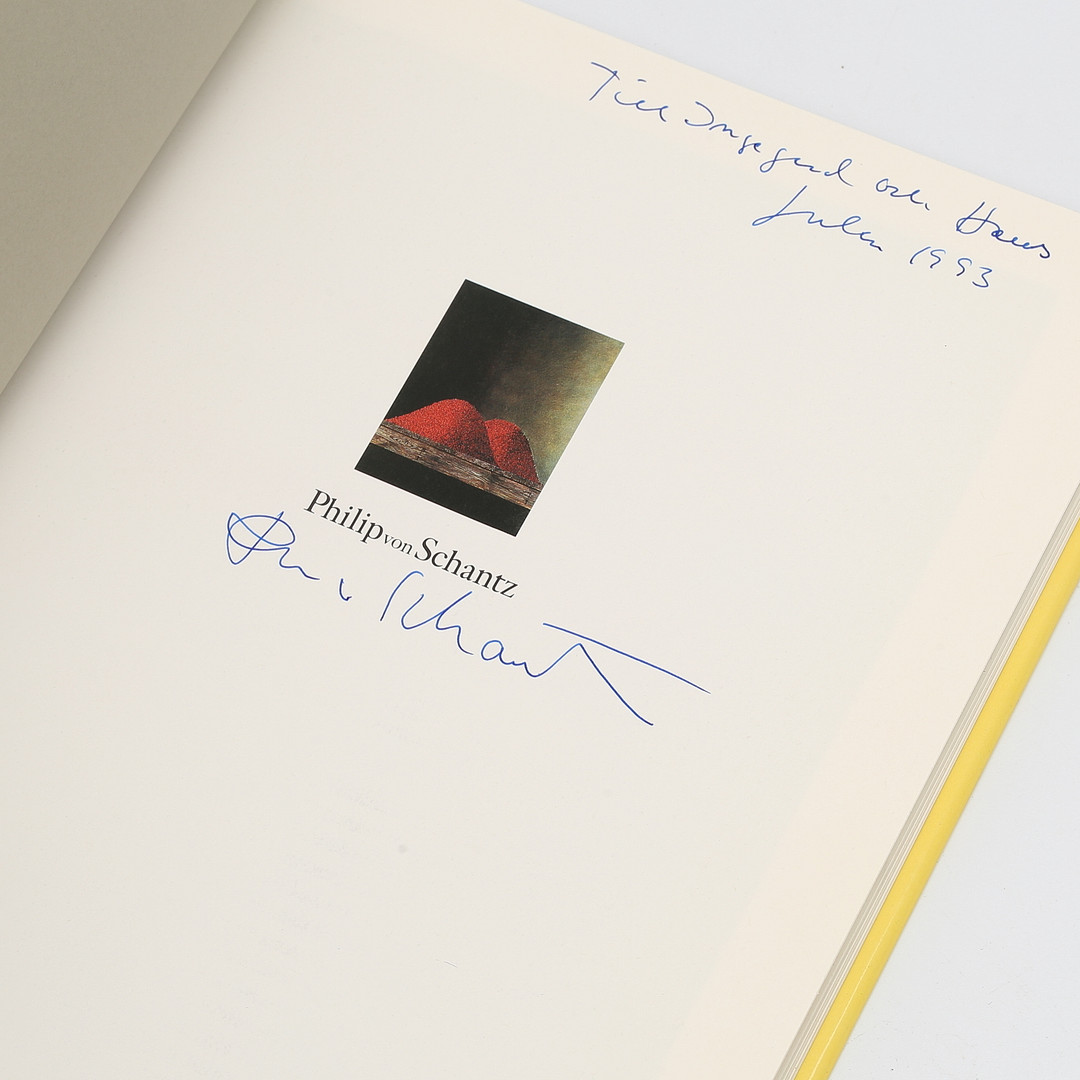 Till Ingegerd och Hans
Julen 1993
Philip von Schantz
Ph v Schantz